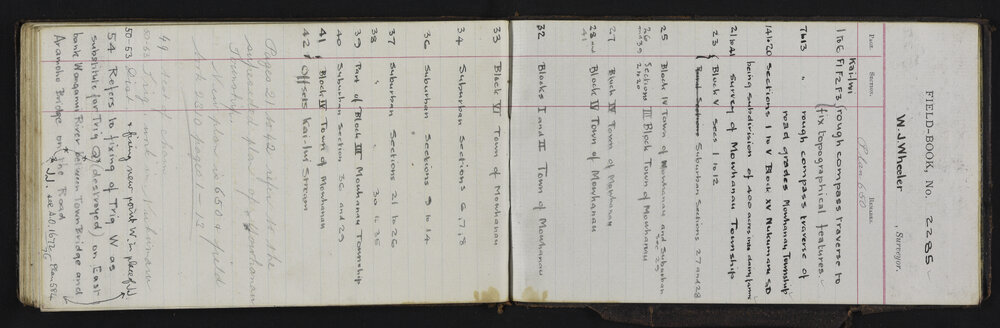 FIELD-BOOK, No. 2285
W.J. Wheeler, Surveyor.
Page. Section. Remarks.
Plan 650
Kai Iwi
1 to 6 F1 F2 F3 (rough compass traverse to
(fix topographical features.
7 to 13 " rough compass traverse of
road grades Mowhanau Township
14 to 20 Sections 1 to V Block XV Nukumaru S.D
being subdivision of 400 acres into dairy farms
21 to 41 Survey of Mowhanau Township
23 Block V Secs 1 to 12
Suburban Sections 27 and 28
25 Block IV Town of Mowhanau and Suburban
Sec 29
26 and 39 Sections III Block Town of Mowhanau
2 to 20
27 Block IV Town of Mowhanau
28 and 41 Block IV Town of Mowhanau
32 Blocks I and II Town of Mowhanau
33 Block VI Town of Mowhanau
34 Suburban Sections 6, 7, 8
36 Suburban Sections 9 to 14
37 Suburban Sections 21 to 26
38 " " 30 to 35
39 Part of Block III Mowhanau Township
40 Suburban Section 36 and 29
41 Block IV Town of Mowhanau
42 Offsets Kai-Iwi Stream
Pages 21 to 42 refer to the
superseded plan of Mowhanau
Township
New plan is 650 & field
book 2310 pages 1-13
49
50-53 Trig work Nukumaru
50-53 Dist & fixing new point W in place of W
54 Refers to fixing of Trig W as
substitute for Trig (W) destroyed on East
bank Wanganui River between Town Bridge and
Aramoho Bridge on the Road
see A.D. 1672 Plan 584